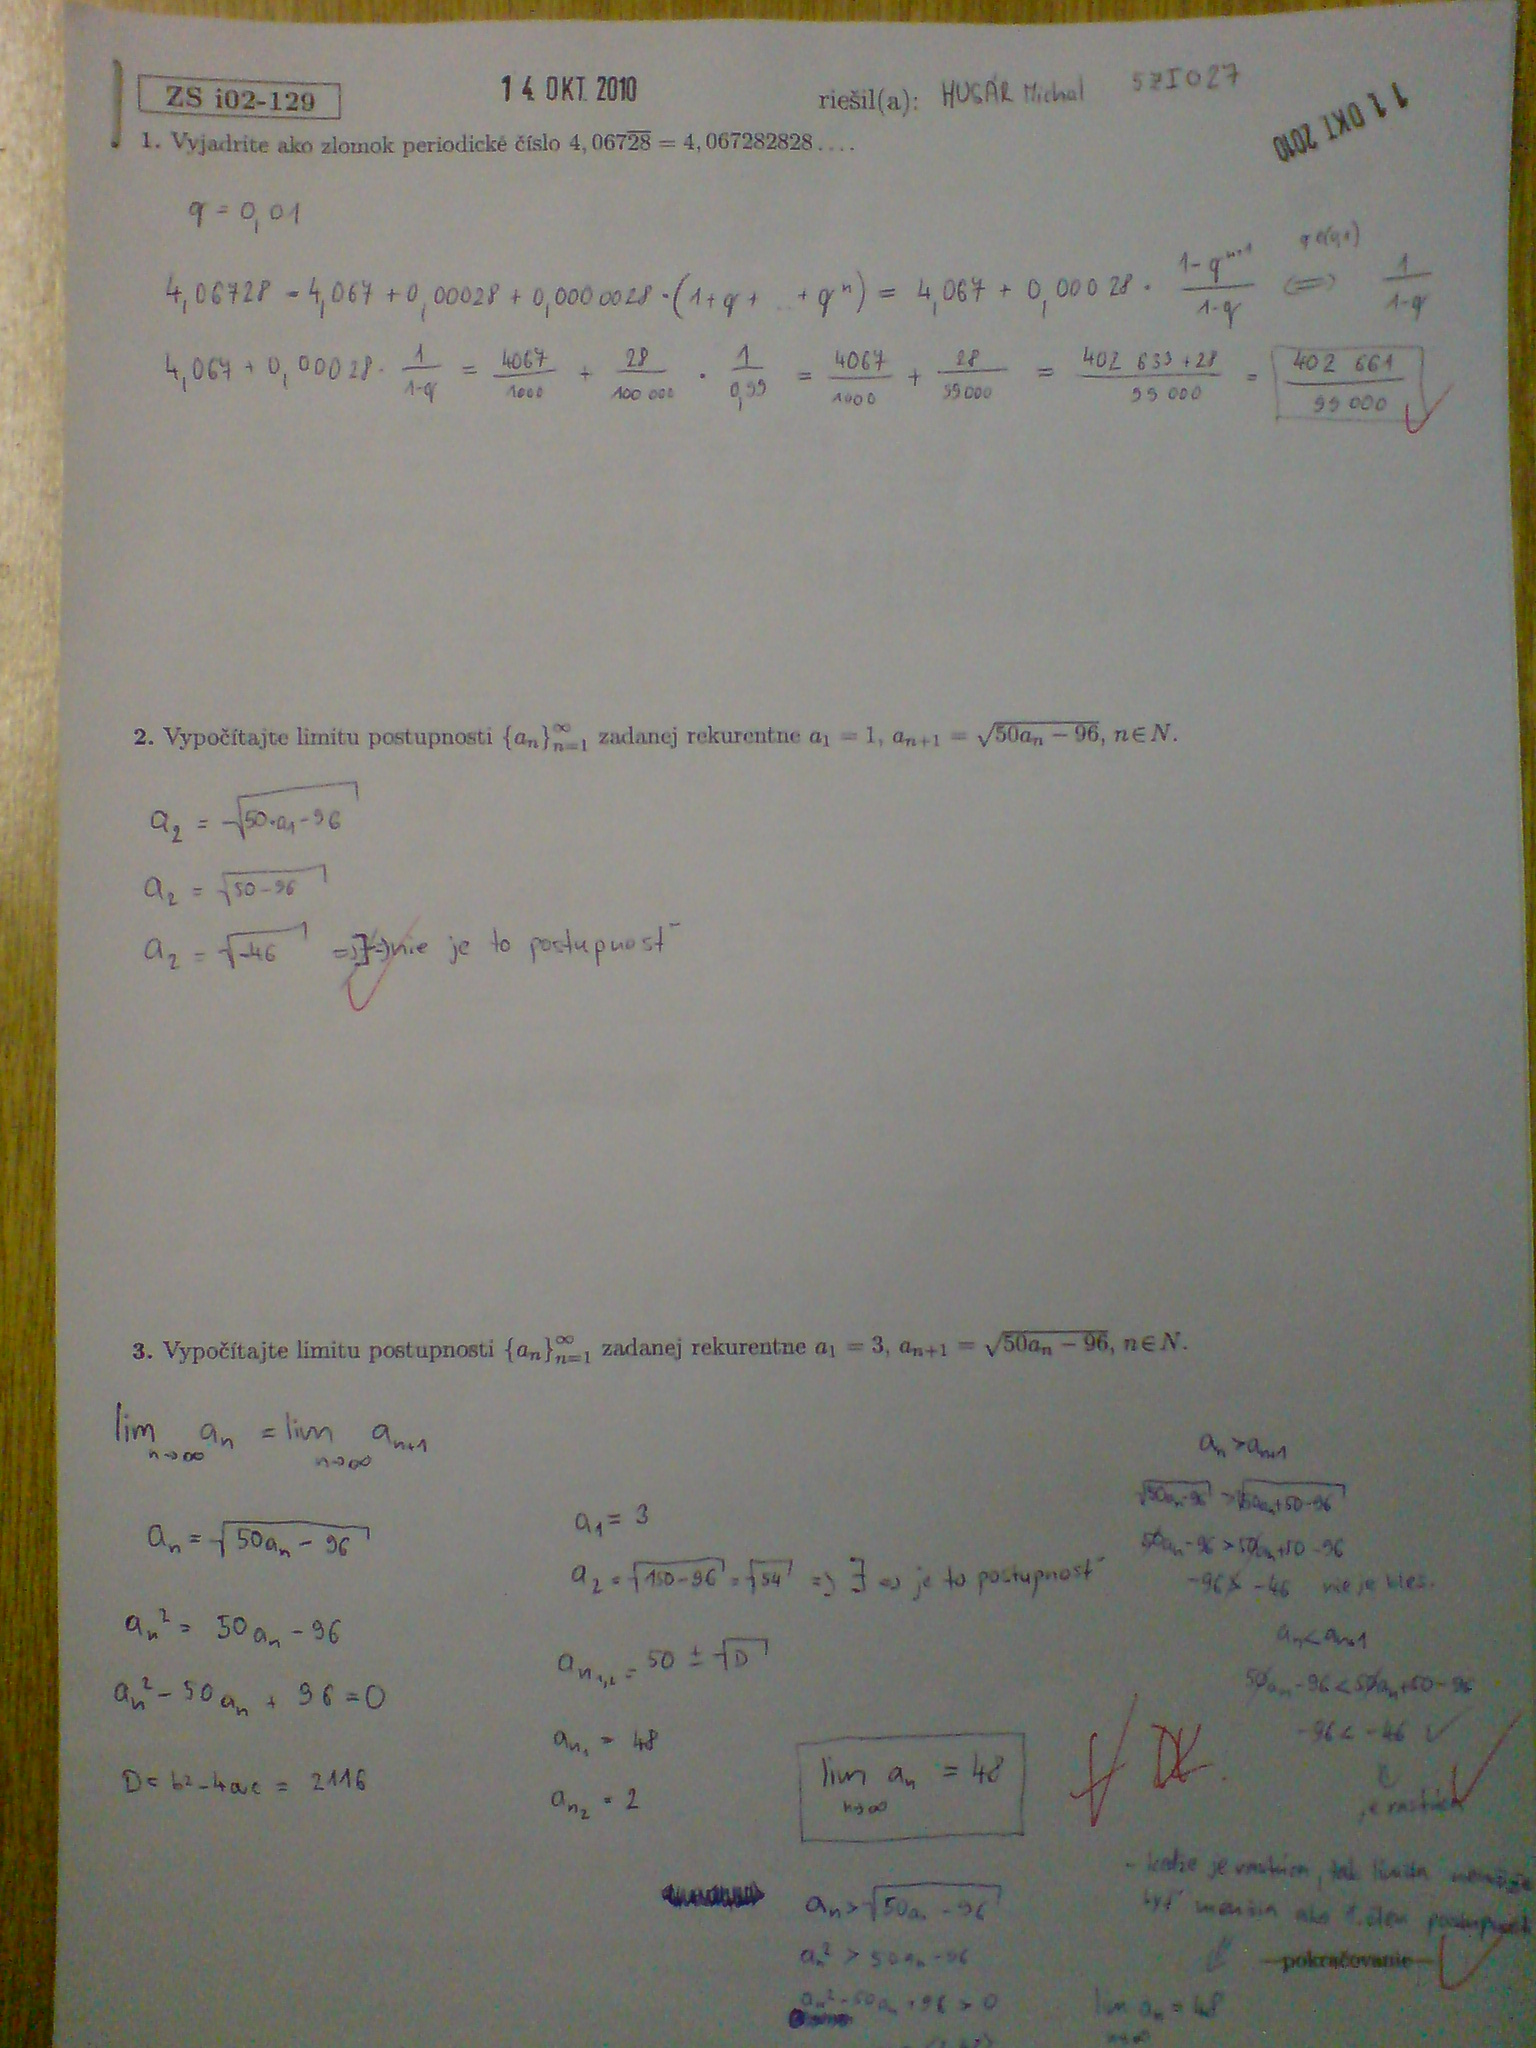 ZS i02-129
14 OKT. 2010
riešil(a): HUSÁR Michal 5ZI027
11 OKT 2010
1. Vyjadrite ako zlomok periodické číslo 4,067\overline{28} = 4,067282828....
q = 0,01
4,06728 = 4,067 + 0,00028 + 0,0000028 · (1+q+ ... +q^n) = 4,067 + 0,00028 · \frac{1-q^{n+1}}{1-q} <=> \frac{1}{1-q}
4,067 + 0,00028 · \frac{1}{1-q} = \frac{4067}{1000} + \frac{28}{100 000} · \frac{1}{0,99} = \frac{4067}{1000} + \frac{28}{99000} = \frac{402 633+28}{99 000} = \frac{402 661}{99 000}
2. Vypočítajte limitu postupnosti {a_n}_{n=1}^∞ zadanej rekurentne a_1 = 1, a_{n+1} = √(50a_n − 96), n∈N.
a_2 = √(50·a_1-96)
a_2 = √(50-96)
a_2 = √(-46) => ∄ => nie je to postupnosť
3. Vypočítajte limitu postupnosti {a_n}_{n=1}^∞ zadanej rekurentne a_1 = 3, a_{n+1} = √(50a_n − 96), n∈N.
lim_{n→∞} a_n = lim_{n→∞} a_{n+1}
a_n = √(50a_n - 96)
a_n^2 = 50a_n - 96
a_n^2 - 50a_n + 96 = 0
D = b^2-4ac = 2116
a_1 = 3
a_2 = √(150-96) = √54 => ∃ => je to postupnosť
a_{n1,2} = 50 ± √D
a_{n1} = 48
a_{n2} = 2
lim_{n→∞} a_n = 48
a_n > √(50a_n - 96)
a_n^2 > 50a_n - 96
a_n^2 - 50a_n + 96 > 0
a_n > a_{n+1}
√(50a_n-96) > √(50a_n+50-96)
50a_n-96 > 50a_n+50-96
-96 ≯ -46 nie je kles.
a_n < a_{n+1}
50a_n-96 < 50a_n+50-96
-96 < -46 ✓
je rastúca
- keďže je rastúca, tak limita nemôže
byť menšia ako 1. člen postupnosti
pokračovanie
lim_{n→∞} a_n = 48